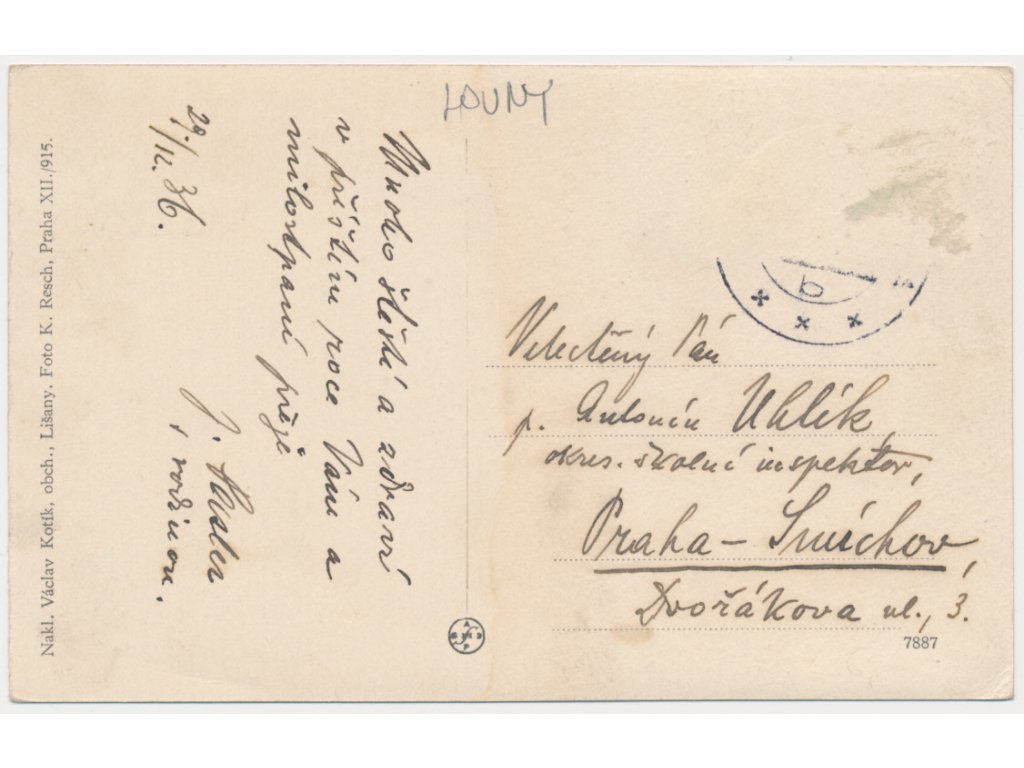 LOUNY
Mnoho štěstí a zdraví
v příštím roce Vám a
milostpaní přeje
J.
s rodinou.
29./12. 36.
Velectěný Pán
p. Antonín Uhlík,
okres. školní inspektor,
Praha - Smíchov
Dvořákova ul., 3.
7887
b
Nakl. Václav Kotík, obch., Lišany. Foto K. Resch, Praha XII./915.